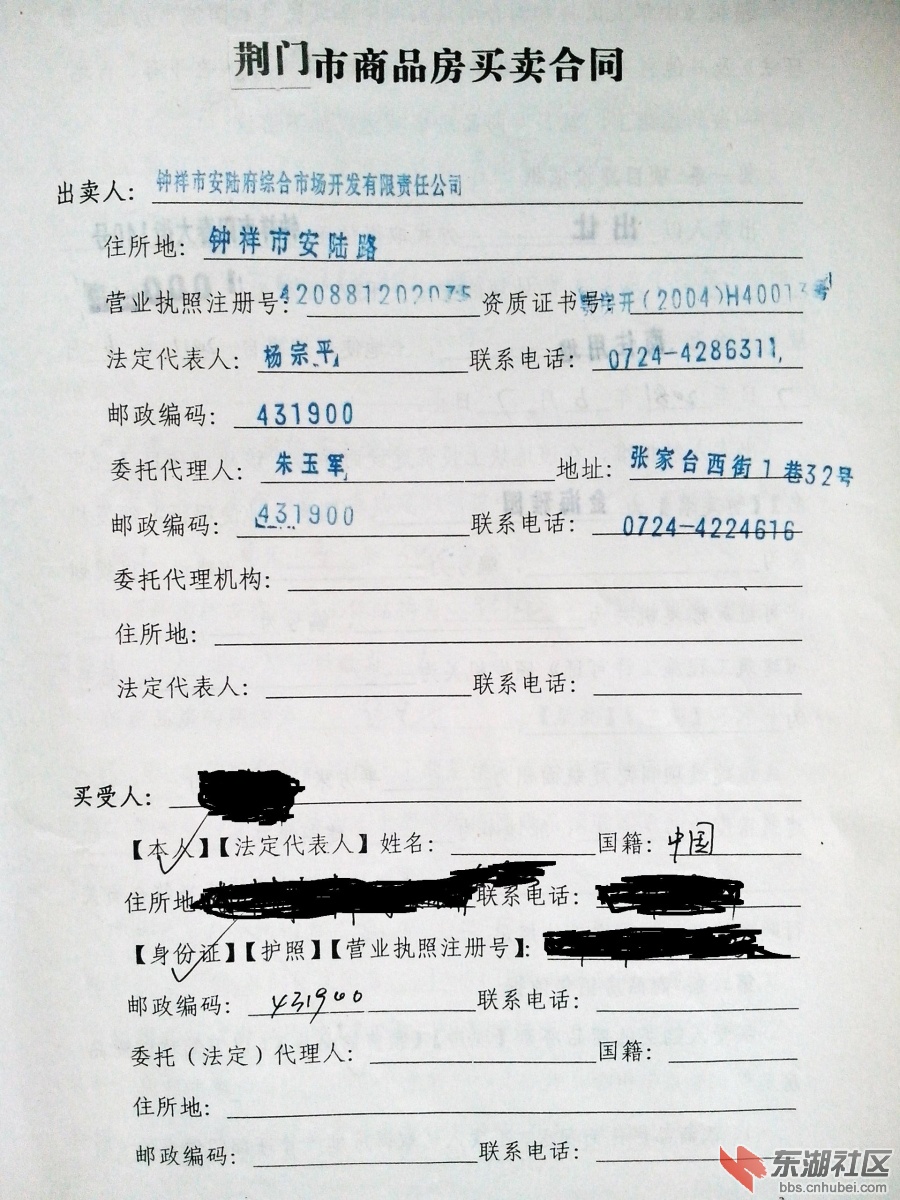 荆门市商品房买卖合同
出卖人：钟祥市安陆府综合市场开发有限责任公司
住所地：钟祥市安陆路
营业执照注册号：420881202075 资质证书号：开(2004)H40013号
法定代表人：杨宗平 联系电话：0724-4286311
邮政编码：431900
委托代理人：朱玉军 地址：张家台西街1巷32号
邮政编码：431900 联系电话：0724-4224616
委托代理机构：
住所地：
法定代表人： 联系电话：
买受人：
【本人】【法定代表人】姓名： 国籍：中国
住所地 联系电话：
【身份证】【护照】【营业执照注册号】：
邮政编码：431900 联系电话：
委托（法定）代理人： 国籍：
住所地：
邮政编码： 联系电话：
东湖社区
bbs.cnhubei.com